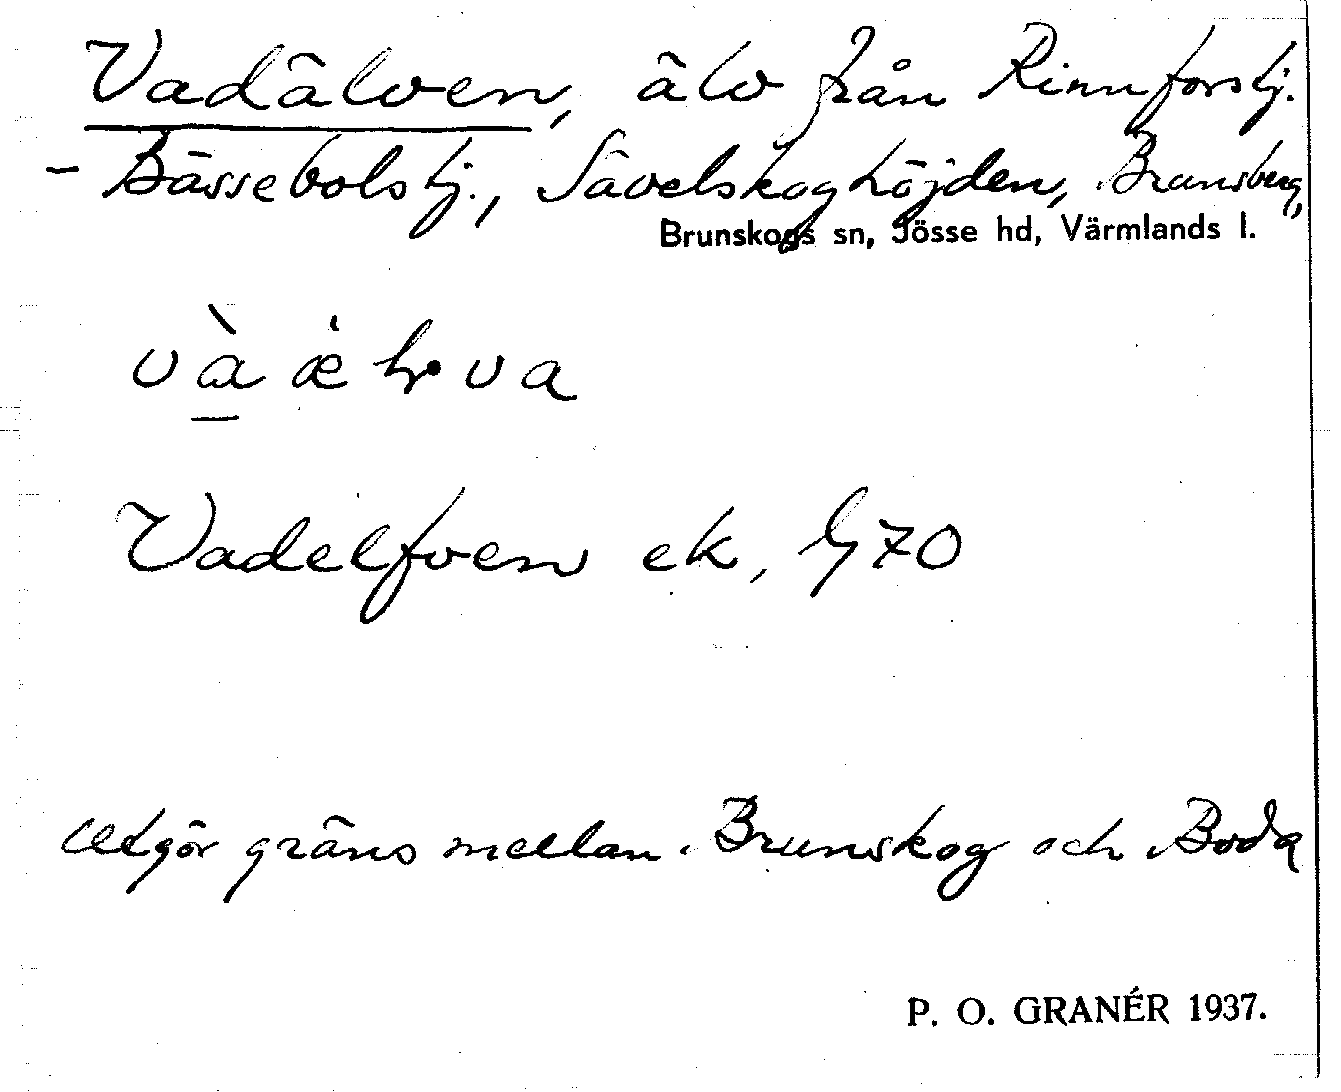 Vadälven, älv från Rinnforstj.
- Bässebolstj., Sävelskoghöjden, Brunsberg,
Brunskogs sn, Jösse hd, Värmlands l.
Vadelfven ek, G70
Utgör gräns mellan Brunskog och Boda
P. O. GRANÉR 1937.